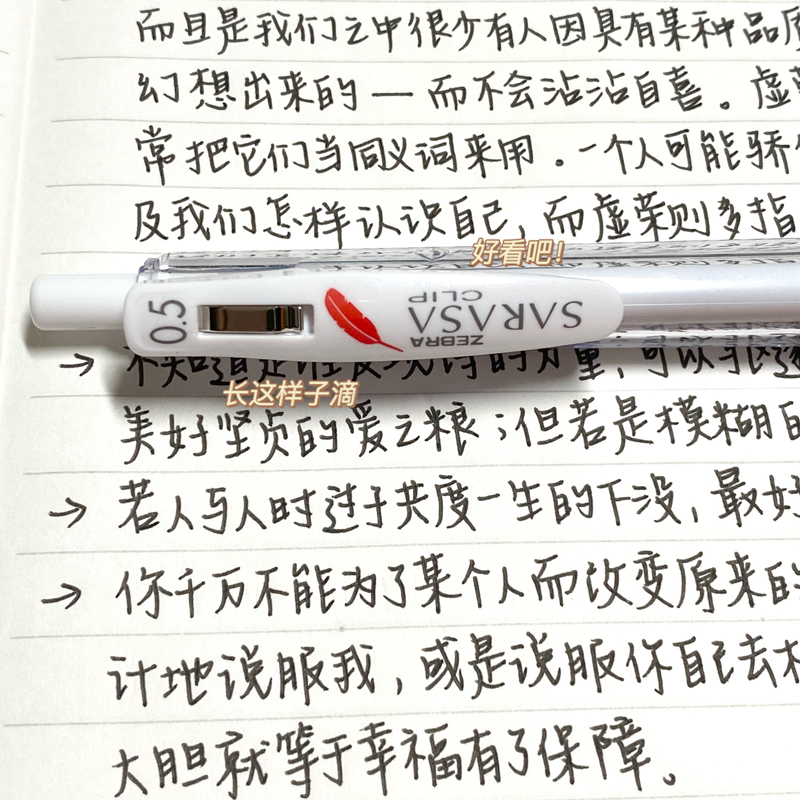 而且是我们之中很少有人因具有某种品质
幻想出来的一而不会沾沾自喜。虚
常把它们当同义词来用.一个人可能骄
及我们怎样认识自己,而虚荣则多指
好看吧!
0.5
SARASA
CLIP
ZEBRA
不知道是 的力量,可以
长这样子滴
美好坚贞的爱之粮;但若是模糊的
→ 若人与人时过于共度一生的下没,最好
→ 你千万不能为了某个人而改变原来的
计地说服我,或是说服你自己去
大胆就等于幸福有了保障。